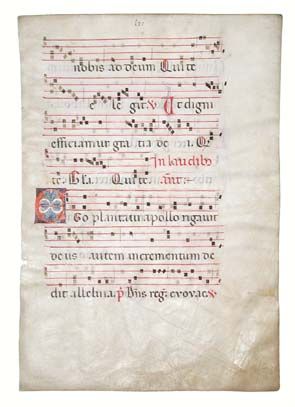 nobis ad deum Qui te
e le git. Et digni
efficiamur gratia de i. Q
In laudib
te. Qui te. ant.
Ego plantaui apollo rigauit
deus autem incrementum de
dit alleluia. Dns reg. evovae